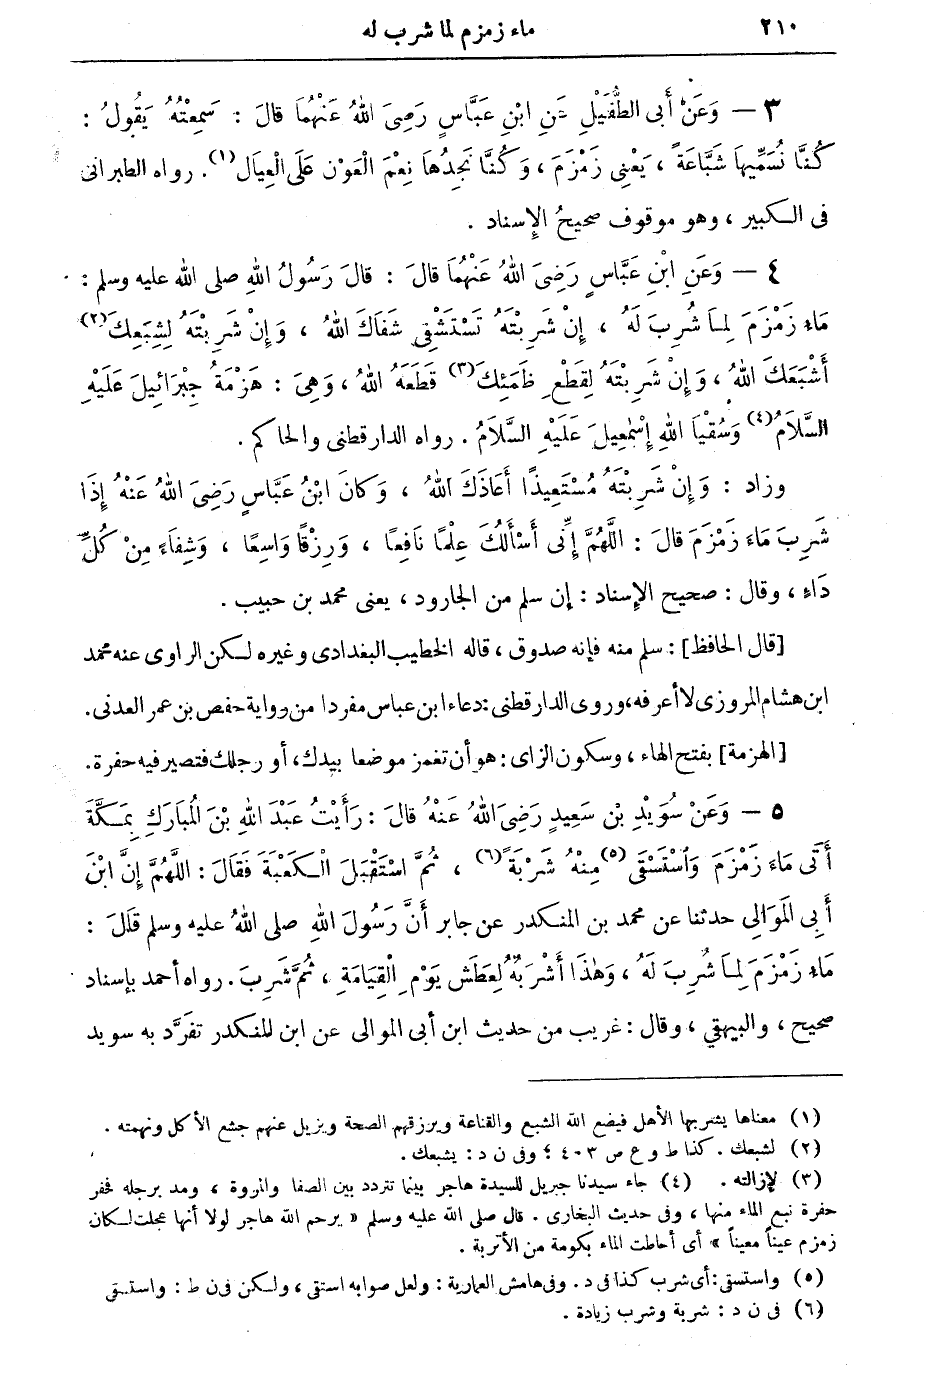 ٢١٠
ماء زمزم لما شرب له
٣ — وَعَنْ أَبِى الطُّفَيْلِ عَنِ ابْنِ عَبَّاسٍ رَضِىَ اللهُ عَنْهُمَا قَالَ : سَمِعْتُهُ يَقُولُ :
كُنَّا نُسَمِّيهَا شَبَّاعَةً ، يَعْنِى زَمْزَمَ ، وَكُنَّا نَجِدُهَا نِعْمَ الْعَوْن عَلَى الْعِيَالِ (١) . رواه الطبرانى
فى الكبير ، وهو موقوف صحيحُ الإِسناد .
٤ — وَعَنِ ابْنِ عَبَّاسٍ رَضِىَ اللهُ عَنْهُمَا قَالَ : قَالَ رَسُولُ اللهِ صلى الله عليه وسلم :
مَاء زَمْزَمَ لِمَا شُرِبَ لَهُ ، إِنْ شَرِبْتَهُ تَسْتَشْفِى شَفَاكَ اللهُ ، وَإِنْ شَرِبْتَهُ لِشِبَعِكَ (٢)
أَشْبَعَكَ اللهُ ، وَإِنْ شَرِبْتَهُ لِقَطْعِ ظَمَئِكَ (٣) قَطَعَهُ اللهُ ، وَهِىَ : هَزْمَةُ جِبْرَائِيلَ عَلَيْهِ
السَّلَامُ (٤) وَسُقْيَا اللهِ إِسْمٰعِيلَ عَلَيْهِ السَّلَامُ . رواه الدارقطنى والحاكم .
وزاد : وَإِنْ شَرِبْتَهُ مُسْتَعِيذًا أَعَاذَكَ اللهُ ، وَكَانَ ابْنُ عَبَّاسٍ رَضِىَ اللهُ عَنْهُ إِذَا
شَرِبَ مَاءَ زَمْزَمَ قَالَ : اللَّهُمَّ إِنِّى أَسْأَلُكَ عِلْمًا نَافِعًا ، وَرِزْقًا وَاسِعًا ، وَشِفَاءً مِنْ كُلِّ
دَاءٍ ، وقال : صحيح الإسناد : إن سلم من الجارود ، يعنى محمد بن حبيب .
[قال الحافظ] : سلم منه فإنه صدوق ، قاله الخطيب البغدادى وغيره لكن الراوى عنه محمد
ابن هشام المروزى لا أعرفه، وروى الدارقطنى : دعاء ابن عباس مفردا من رواية حفص بن عمر العدنى .
[الهزمة] بفتح الهاء ، وسكون الزاى : هو أن تغمز موضعا بيدك، أو رجلك فتصير فيه حفرة .
٥ — وَعَنْ سُوَيْدِ بْنِ سَعِيدٍ رَضِىَ اللهُ عَنْهُ قَالَ : رَأَيْتُ عَبْدَ اللهِ بْنَ الْمُبَارَكِ بِمَكَّةَ
أَتَى مَاءَ زَمْزَمَ وَاسْتَسْقَى (٥) مِنْهُ شَرْبَةً (٦) ، ثُمَّ اسْتَقْبَلَ الْكَعْبَةَ فَقَالَ : اللَّهُمَّ إِنَّ ابْنَ
أَبِى الْمَوَالِى حدثنا عن محمد بن المنكدر عن جابر أَنَّ رَسُولَ اللهِ صلى اللهُ عليه وسلم قَالَ :
مَاءُ زَمْزَمَ لِمَا شُرِبَ لَهُ ، وَهٰذَا أَشْرَبُهُ لِعَطَشِ يَوْمِ الْقِيَامَةِ ، ثُمَّ شَرِبَ . رواه أحمد بإسناد
صحيح ، والبيهقي ، وقال : غريب من حديث ابن أبى الموالى عن ابن المنكدر تفَرَّد به سويد
(١) معناها يشربها الأهل فيضع الله الشبع والقناعة ويرزقهم الصحة ويزيل عنهم جشع الأكل ونهمته .
(٢) لشبعك . كذا ط و ع ص ٤٠٣ ؛ وفى ن د : يشبعك .
(٣) لإزالته . (٤) جاء سيدنا جبريل للسيدة هاجر بينما تتردد بين الصفا والمروة ، ومد برجله فحفر
حفرة نبع الماء منها ، وفى حديث البخارى . قال صلى الله عليه وسلم « يرحم الله هاجر لولا أنها عجلت لكان
زمزم عيناً معيناً » أى أحاطت الماء بكومة من الأتربة .
(٥) واستسقى : أى شرب كذا فى د . وفى هامش العمارية : ولعل صوابه استقى ، ولكن فى ن ط : واستسقى
(٦) فى ن د : شربة وشرب زيادة .